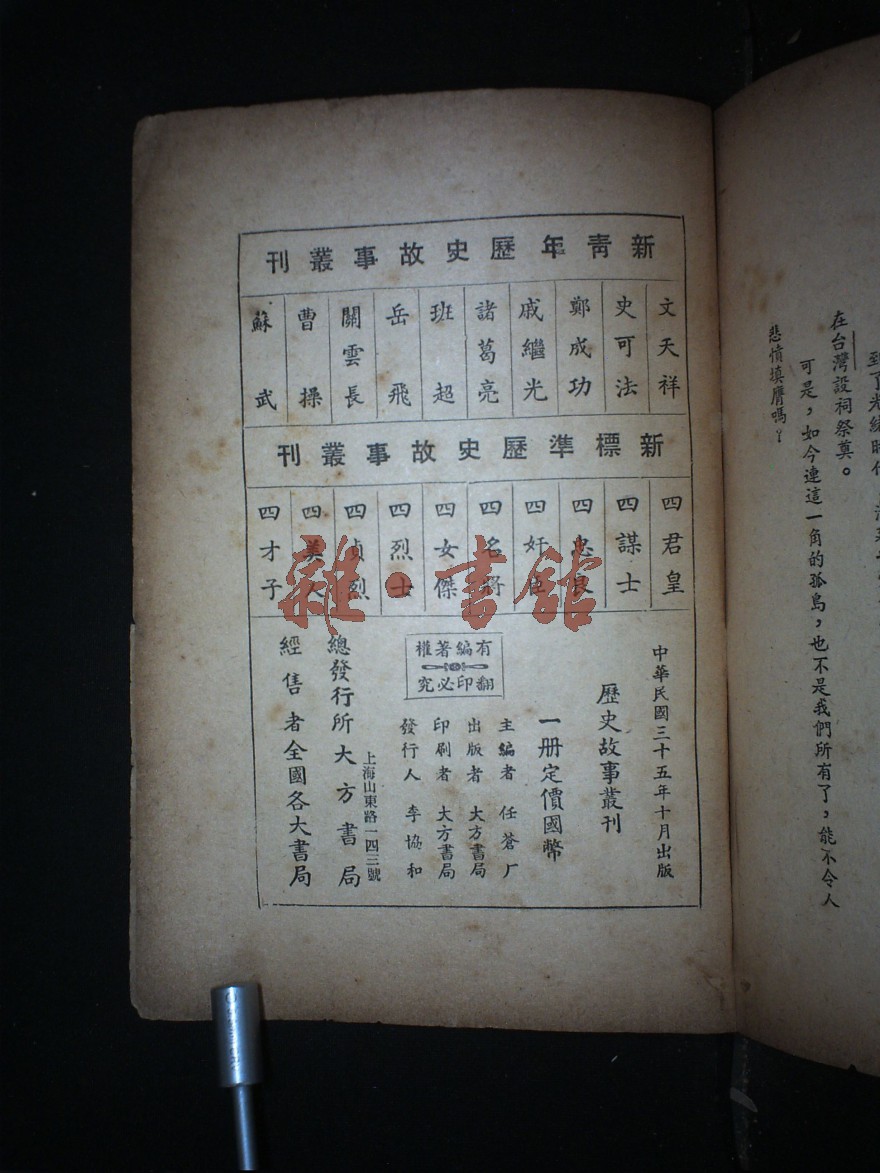 在台灣設祠祭奠。
可是，如今連這一角的孤島，也不是我們所有了，能不令人
悲憤填膺嗎？
新青年歷史故事叢刊
文天祥
史可法
鄭成功
戚繼光
諸葛亮
班超
岳飛
關雲長
曹操
蘇武
新標準歷史故事叢刊
四君皇
四謀士
四忠良
四奸臣
四名將
四女傑
四烈士
四貞烈
四美人
四才子
中華民國三十五年十月出版
歷史故事叢刊
一册定價國幣
有編著權
翻印必究
主編者 任蒼厂
出版者 大方書局
印刷者 大方書局
發行人 李協和
上海山東路一四三號
總發行所大方書局
經售者全國各大書局
雜·書館